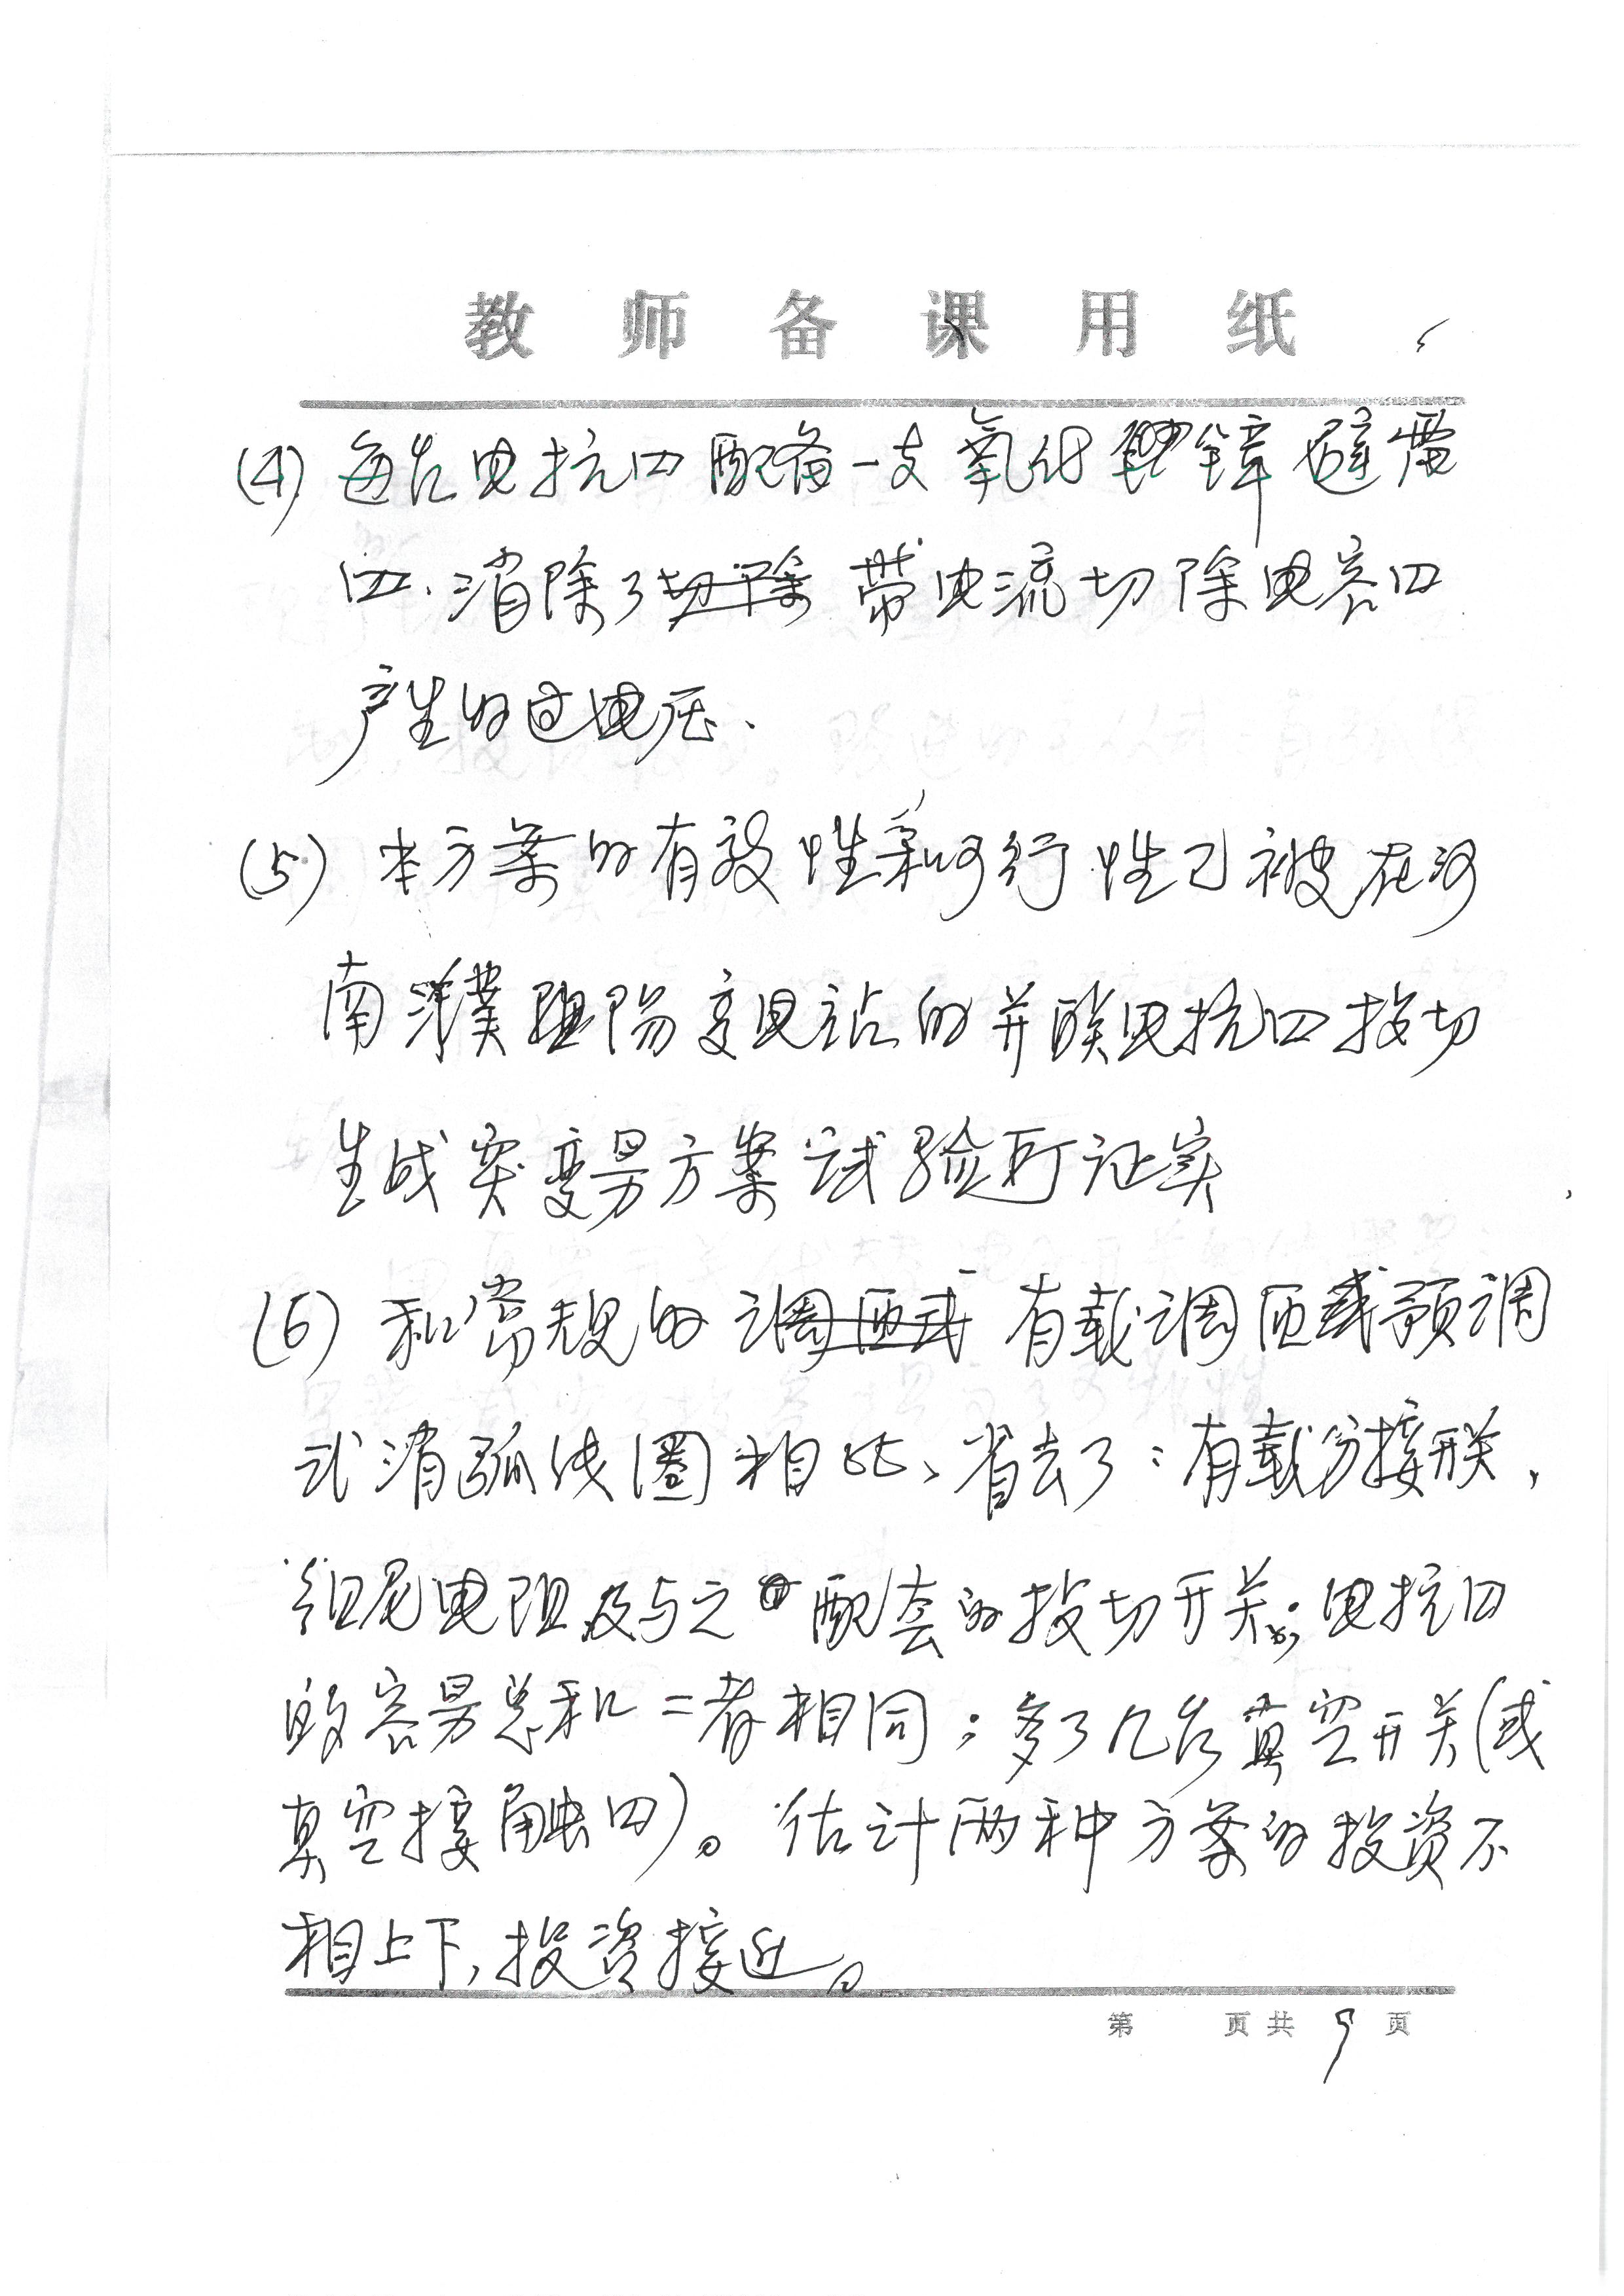 教师备课用纸
(4) 每台电抗口配备一支氧化锌避雷
口.消除了切除带电流切除电容口
产生的过电压.
(5) 本方案的有效性和可行性已被在河
南濮阳变电站的并联电抗口投切
生成突变量方案试验所证实
(6) 和常规的调匝式有载调匝或预调
式消弧线圈相比、省去了:有载分接开关,
组尾电阻及与之配套的投切开关;电抗口
的容量总和二者相同;多了几台真空开关(或
真空接触口)。估计两种方案的投资不
相上下,投资接近。
第 页共 9 页